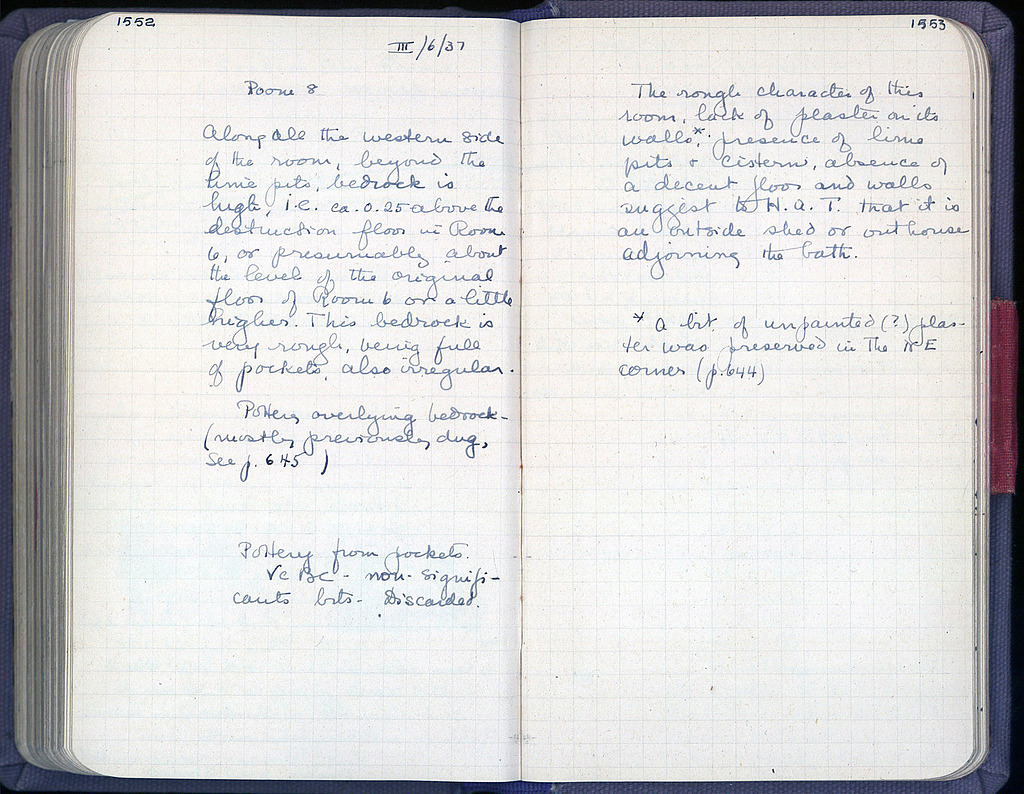 1552
III/6/37
Room 8
Along all the western side
of the room, beyond the
lime pits, bedrock is
high, i.e. ca. 0.25 above the
destruction floor in Room
6, or presumably about
the level of the original
floor of Room 6 or a little
higher. This bedrock is
very rough, being full
of pockets, also irregular.
Pottery overlying bedrock -
(mostly previously dug,
see p. 645 )
Pottery from pockets.
Vc BC - non-signifi-
cants bits - Discarded.
1553
The rough character of this
room, lack of plaster on its
walls*, presence of lime
pits & cistern, absence of
a decent floor and walls
suggest to H.A.T. that it is
an outside shed or outhouse
adjoining the bath.
* a bit of unpainted (?) plas-
ter was preserved in the NE
corner (p.644)